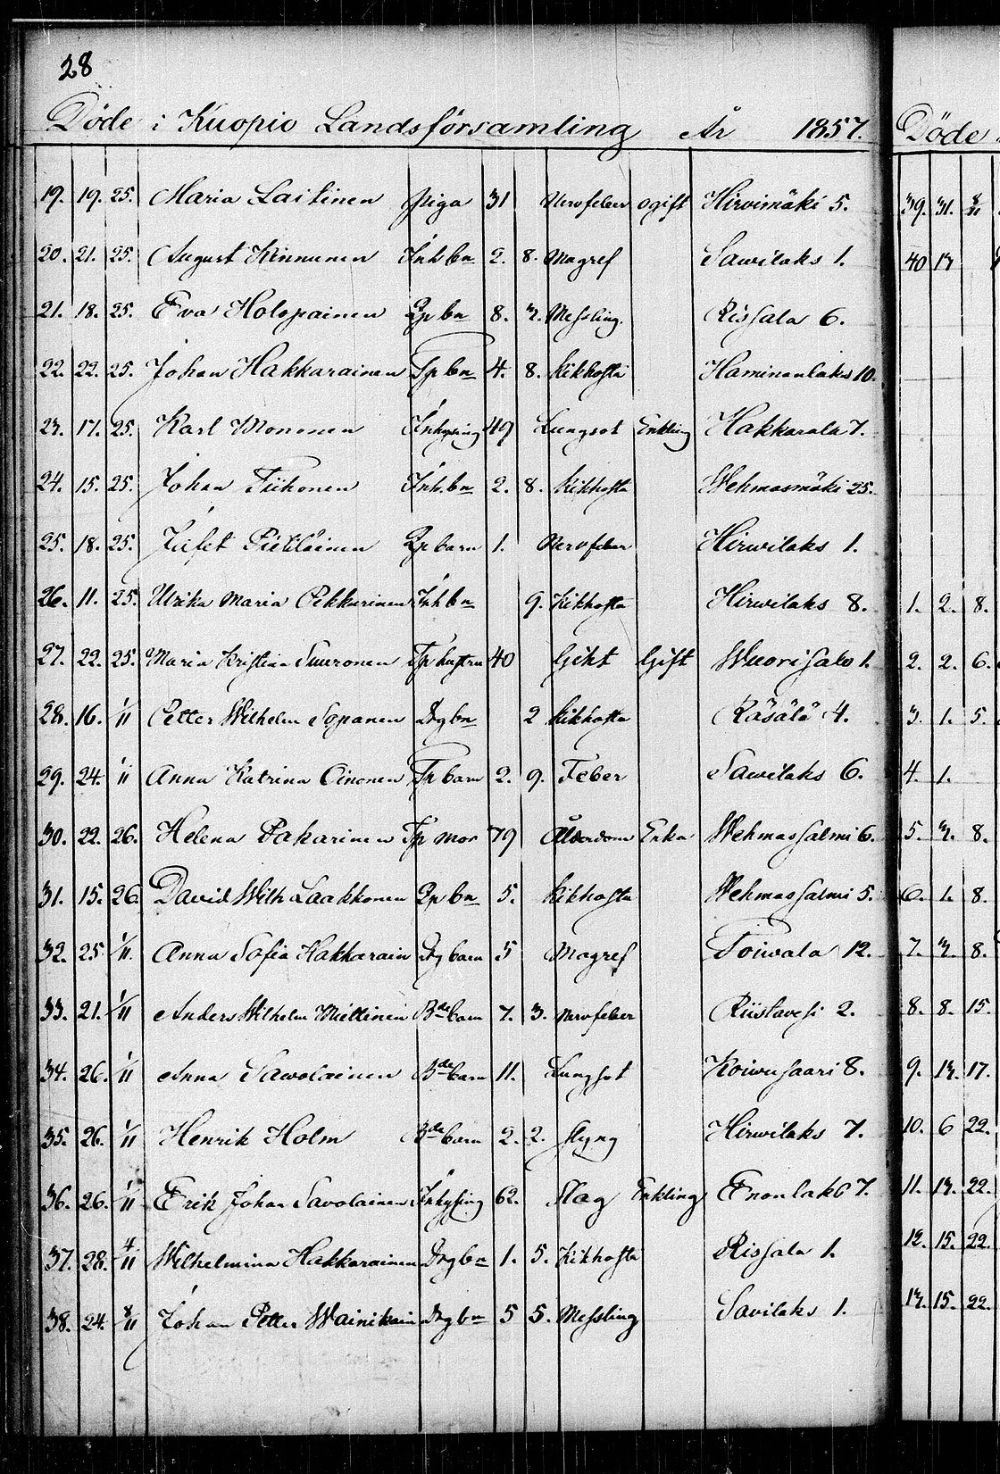 28
Döde i Kuopio Landsförsamling År 1857.
19. 19. 25. Maria Laitinen piga 31 Nervfeber ogift Hirvimäki 5.
20. 21. 25. August Kinnunen Inh.bn 2. 8. Magref Sawilaks 1.
21. 18. 25. Eva Holopainen bn 8. Messling. Rissala 6.
22. 22. 25. Johan Hakkarainen Tp bn 4. 8. Kikhosta Haminanlaks 10.
17. 25. Karl Mononen Inhysing 49 Lungsot Enkling Hakkarala 7.
24. 15. 25. Johan Tiihonen Inh.bn 2. 8. Kikhosta Wehmasmäki 25.
25. 18. 25. Pietiläinen barn 1. Nervfeber Hirwilaks 1.
26. 11. 25. Ulrika Maria Pekkarinen Inhbn 9. Kikhosta Hirwilaks 8.
27. 22. 25. Maria Kristina Suuronen Tp hustru 40 Gikt Gift Wuorisalo 1.
28. 16. 1/11 Petter Wilhelm Sopanen Drg bn 2 Kikhosta Räsälä 4.
29. 24. 1/11 Anna Katrina Oinonen Tp barn 2. 9. Feber Sawilaks 6.
30. 22. 26. Helena Pakarinen Tp mor 79 Ålderdom Enka Wehmassalmi 6.
31. 15. 26. David Wilh Laakkonen bn 5. Kikhosta Wehmassalmi 5.
32. 25 1/11. Anna Sofia Hakkarain Drg barn 5 Magref Toiwala 12.
33. 21. 1/11 Anders Wilhelm Miettinen Bde barn 7. 3. Nervfeber Riistavesi 2.
34. 26. 1/11 Anna Sawolainen Bde barn 11. Lungsot Koiwusaari 8.
35. 26. 1/11 Henrik Holm Bde barn 2. 2. Styng Hirwilaks 7.
36. 26. 1/11 Erik Johan Savolainen Inhysing 62. Slag Enkling Enonlaks 7.
37. 28. 4/11 Wilhelmina Hakkarainen Drg bn 1. 5. Kikhosta Rissala 1.
38. 24. 8/11 Johan Petter Wainikain Drg bn 5 5. Messling Savilaks 1.
Döde
39. 31. 8/11
40
1. 2. 8.
2. 2. 6.
3. 1. 5.
4. 1.
5. 8.
6. 1. 8.
7. 8.
8. 8. 15.
9. 17.
10. 6 22.
11. 22.
12. 15. 22.
15. 22.